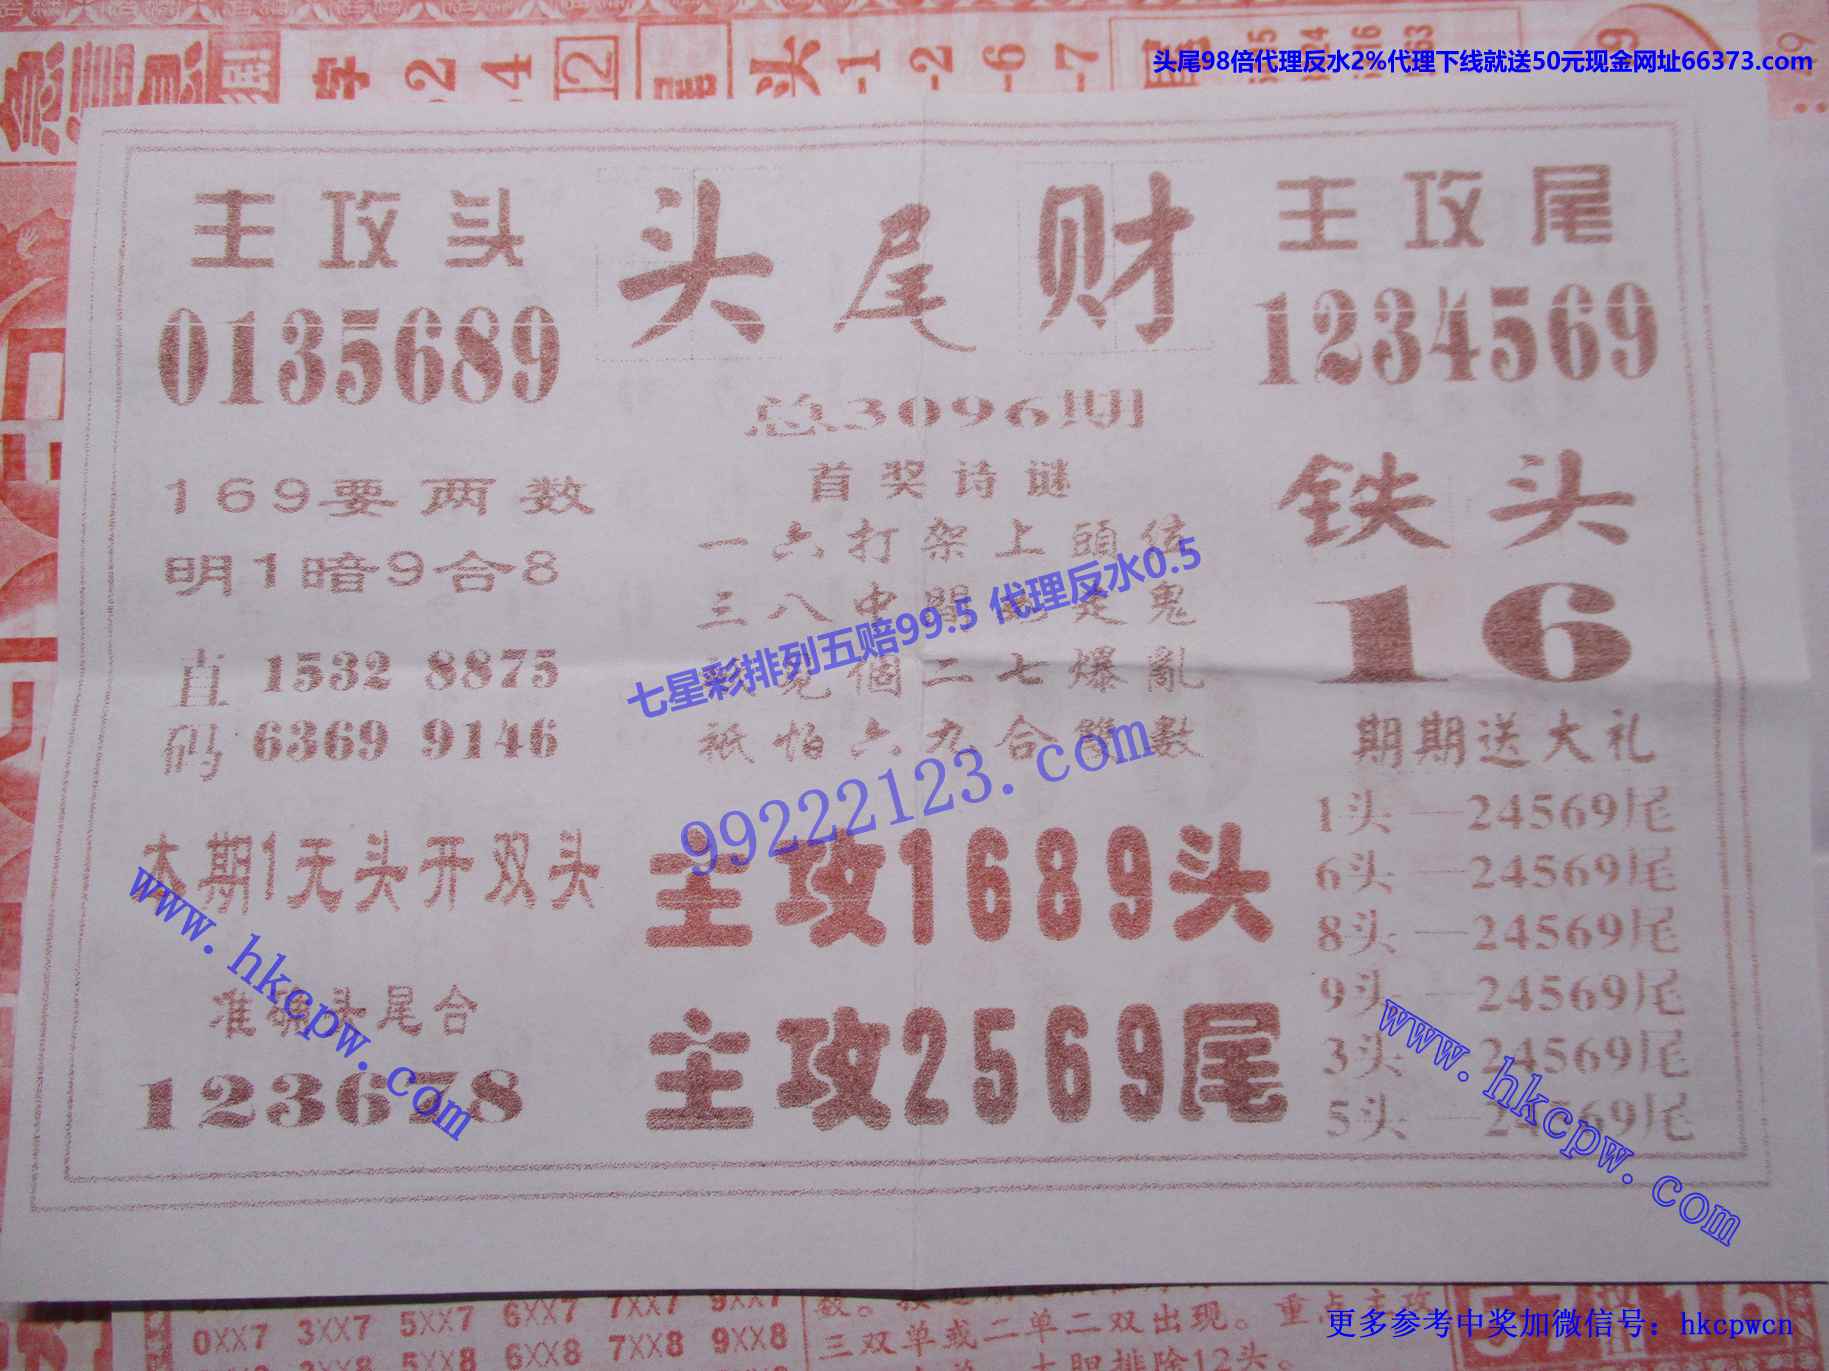 头尾98倍代理反水2%代理下线就送50元现金网址66373.com
主攻头
0135689
头尾财
主攻尾
1234569
总3096期
首奖诗谜
一六打架上頭位
三八中間
鬼
個二七爆亂
祇怕六九合雙數
七星彩排列五赔99.5 代理反水0.5
99222123.com
169要两数
明1暗9合8
直码
1532 8875
6369 9146
铁头
16
期期送大礼
1头—24569尾
6头—24569尾
8头—24569尾
9头—24569尾
3头—24569尾
5头—24569尾
本期1无头开双头
主攻1689头
准确头尾合
123678
主攻2569尾
www.hkcpw.com
www.hkcpw.com
0XX7 3XX7 5XX7 6XX7 7XX7 9XX7
5XX8 6XX8 7XX8 9XX8
三双单或二单二双出现。重点主攻
七胆排除12头。
更多参考中奖加微信号：hkcpwcn